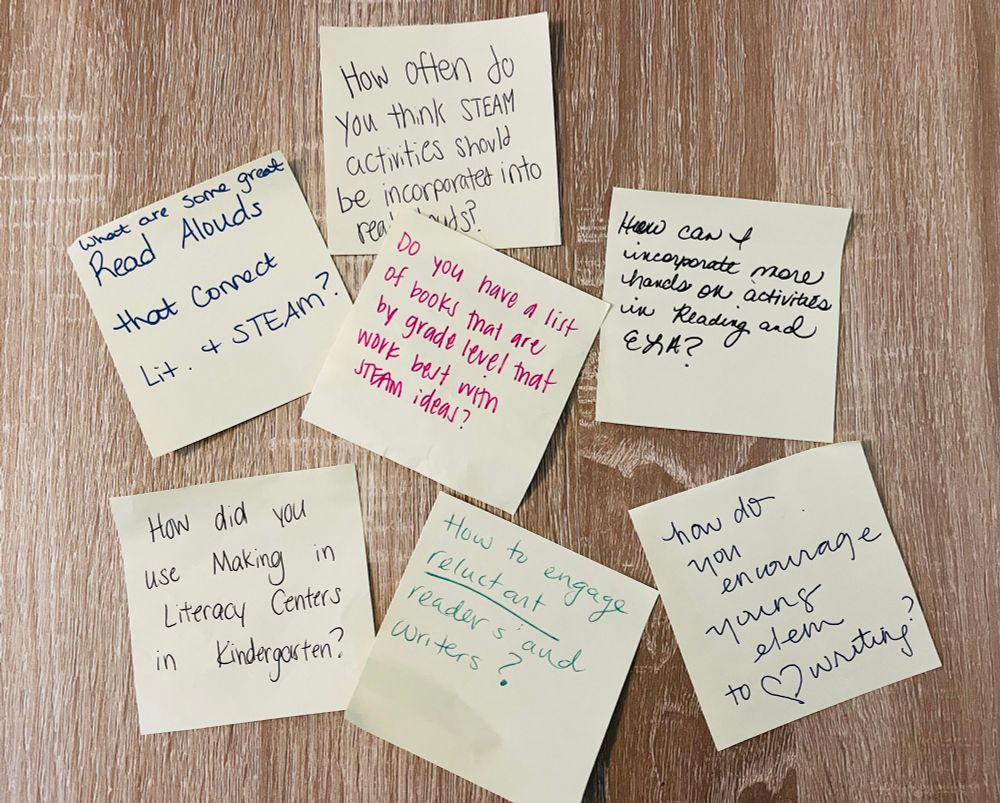 How often do
you think STEAM
activities should
be incorporated into
read alouds?
What are some great
Read Alouds
that Connect
Lit. + STEAM?
Do you have a list
of books that are
by grade level that
work best with
STEAM ideas?
How can I
incorporate more
hands on activities
in Reading and
ELA?
How did you
use Making in
Literacy Centers
in Kindergarten?
How to engage
reluctant
readers and
writers?
how do
you
encourage
young
elem
to ♡ writing?